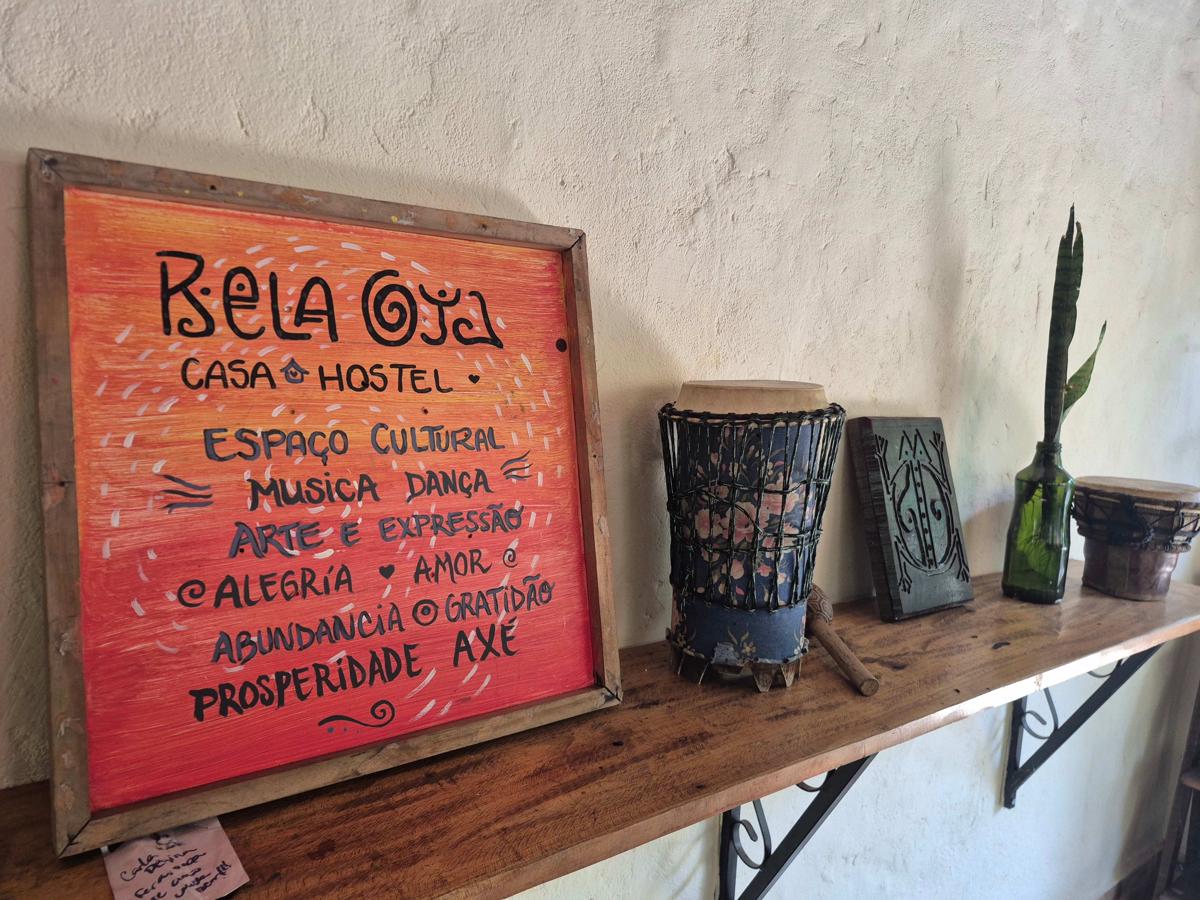 BELA OYA
CASA HOSTEL
ESPAÇO CULTURAL
MUSICA DANÇA
ARTE E EXPRESSÃO
ALEGRÍA AMOR
ABUNDANCIA GRATIDÃO
PROSPERIDADE AXÉ